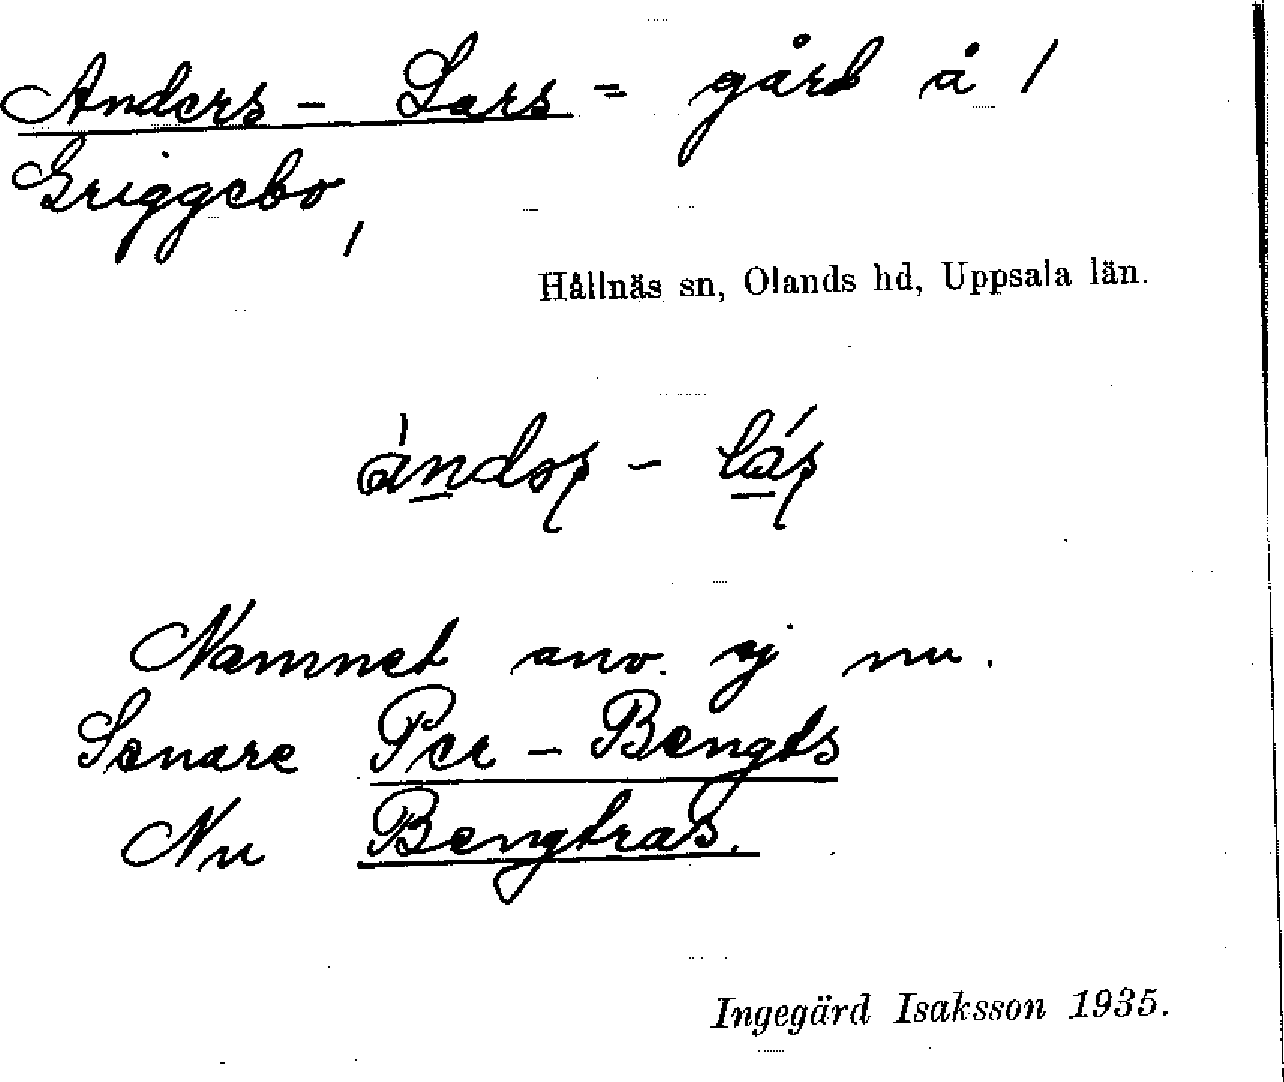 Anders - Lars = gård å /
Griggebo, /
Hållnäs sn, Olands hd, Uppsala län.
àndoʂ - láʂ
Namnet anv. ej nu.
Senare Per - Bengts
Nu Bengtras.
Ingegärd Isaksson 1935.